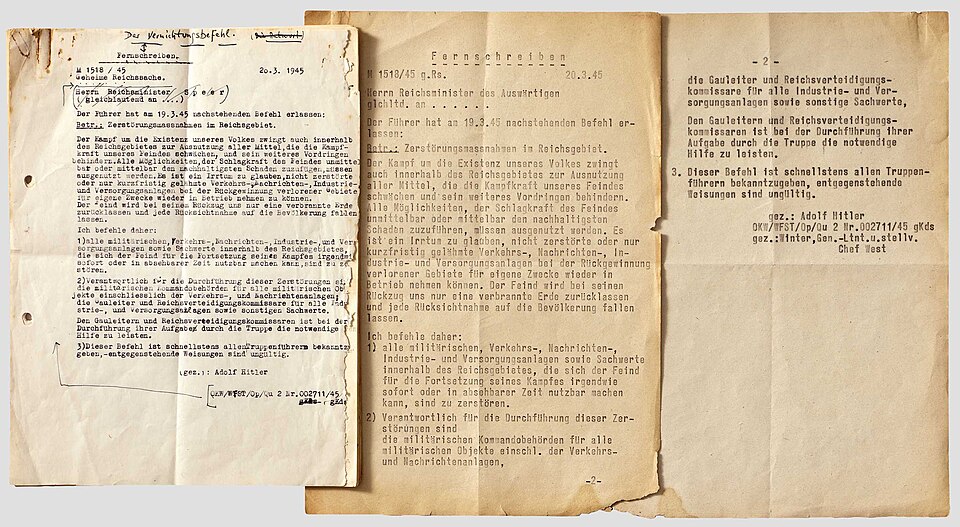 Das Vernichtungsbefehl.
Fernschreiben.
M 1518 / 45
20.3. 1945
Geheime Reichssache.
Herrn Reichsminister Speer
gleichlautend an ....
Der Führer hat am 19.3.45 nachstehenden Befehl erlassen:
Betr.: Zerstörungsmassnahmen im Reichsgebiet.
Der Kampf um die Existenz unseres Volkes zwingt auch innerhalb
des Reichsgebietes zur Ausnutzung aller Mittel, die die Kampf-
kraft unseres Feindes schwächen, und sein weiteres Vordringen
behindern. Alle Möglichkeiten, der Schlagkraft des Feindes unmittel
bar oder mittelbar den nachhaltigsten Schaden zuzufügen, müssen
ausgenutzt werden. Es ist ein Irrtum zu glauben, nicht zerstörte
oder nur kurzfristig gelähmte Verkehrs-, Nachrichten-, Industrie-
und Versorgungsanlagen bei der Rückgewinnung verlorener Gebiete
für eigene Zwecke wieder in Betrieb nehmen zu können.
Der Feind wird bei seinem Rückzug uns nur eine verbrannte Erde
zurücklassen und jede Rücksichtnahme auf die Bevölkerung fallen
lassen.
Ich befehle daher:
1)alle militärischen, Verkehrs-, Nachrichten-, Industrie-, und Ver
sorgungsanlagen sowie Sachwerte innerhalb des Reichsgebietes,
die sich der Feind für die Fortsetzung seines Kampfes irgendwie
sofort oder in absehbarer Zeit nutzbar machen kann, sind zu zer-
stören.
2)Verantwortlich für die Durchführung dieser Zerstörungen si
die militärischen Kommandobehörden für alle militärischen Ob-
jekte einschliesslich der Verkehrs-, und Nachrichtenanlagen,
die Gauleiter und Reichsverteidigungskommissare für alle Indu
strie-, und Versorgungsanlagen sowie sonstigen Sachwerte.
Den Gauleitern und Reichsverteidigungskommissaren ist bei der
Durchführung ihrer Aufgaben durch die Truppe die notwendige
Hilfe zu leisten.
3)Dieser Befehl ist schnellstens allen Truppenführern bekanntz
geben,-entgegenstehende Weisungen sind ungültig.
(gez.): Adolf Hitler
OKW/WFST/Op/Qu 2 Nr.002711/45
gKds
Fernschreiben
M 1518/45 g.Rs.
20.3.45
Herrn Reichsminister des Auswärtigen
glchltd. an . . . . . .
Der Führer hat am 19.3.45 nachstehenden Befehl er-
lassen:
Betr.: Zerstörungsmaßnahmen im Reichsgebiet.
Der Kampf um die Existenz unseres Volkes zwingt
auch innerhalb des Reichsgebietes zur Ausnutzung
aller Mittel, die die Kampfkraft unseres Feindes
schwächen und sein weiteres Vordringen behindern.
Alle Möglichkeiten, der Schlagkraft des Feindes
unmittelbar oder mittelbar den nachhaltigsten
Schaden zuzuführen, müssen ausgenutzt werden. Es
ist ein Irrtum zu glauben, nicht zerstörte oder nur
kurzfristig gelähmte Verkehrs-, Nachrichten-, In-
dustrie- und Versorgungsanlagen bei der Rückgewinnung
verlorener Gebiete für eigene Zwecke wieder in
Betrieb nehmen zu können. Der Feind wird bei seinem
Rückzug uns nur eine verbrannte Erde zurücklassen
und jede Rücksichtnahme auf die Bevölkerung fallen
lassen.
Ich befehle daher:
1) alle militärischen, Verkehrs-, Nachrichten-,
Industrie- und Versorgungsanlagen sowie Sachwerte
innerhalb des Reichsgebietes, die sich der Feind
für die Fortsetzung seines Kampfes irgendwie
sofort oder in absehbarer Zeit nutzbar machen
kann, sind zu zerstören.
2) Verantwortlich für die Durchführung dieser Zer-
störungen sind
die militärischen Kommandobehörden für alle
militärischen Objekte einschl. der Verkehrs-
und Nachrichtenanlagen,
-2-
- 2 -
die Gauleiter und Reichsverteidigungs-
kommissare für alle Industrie- und Ver-
sorgungsanlagen sowie sonstige Sachwerte,
Den Gauleitern und Reichsverteidigungs-
kommissaren ist bei der Durchführung ihrer
Aufgabe durch die Truppe die notwendige
Hilfe zu leisten.
3. Dieser Befehl ist schnellstens allen Truppen-
führern bekanntzugeben, entgegenstehende
Weisungen sind ungültig.
gez.: Adolf Hitler
OKW/WFST/Op/Qu 2 Nr.002711/45 gKds
gez.:Winter,Gen.-Ltnt.u.stellv.
Chef West